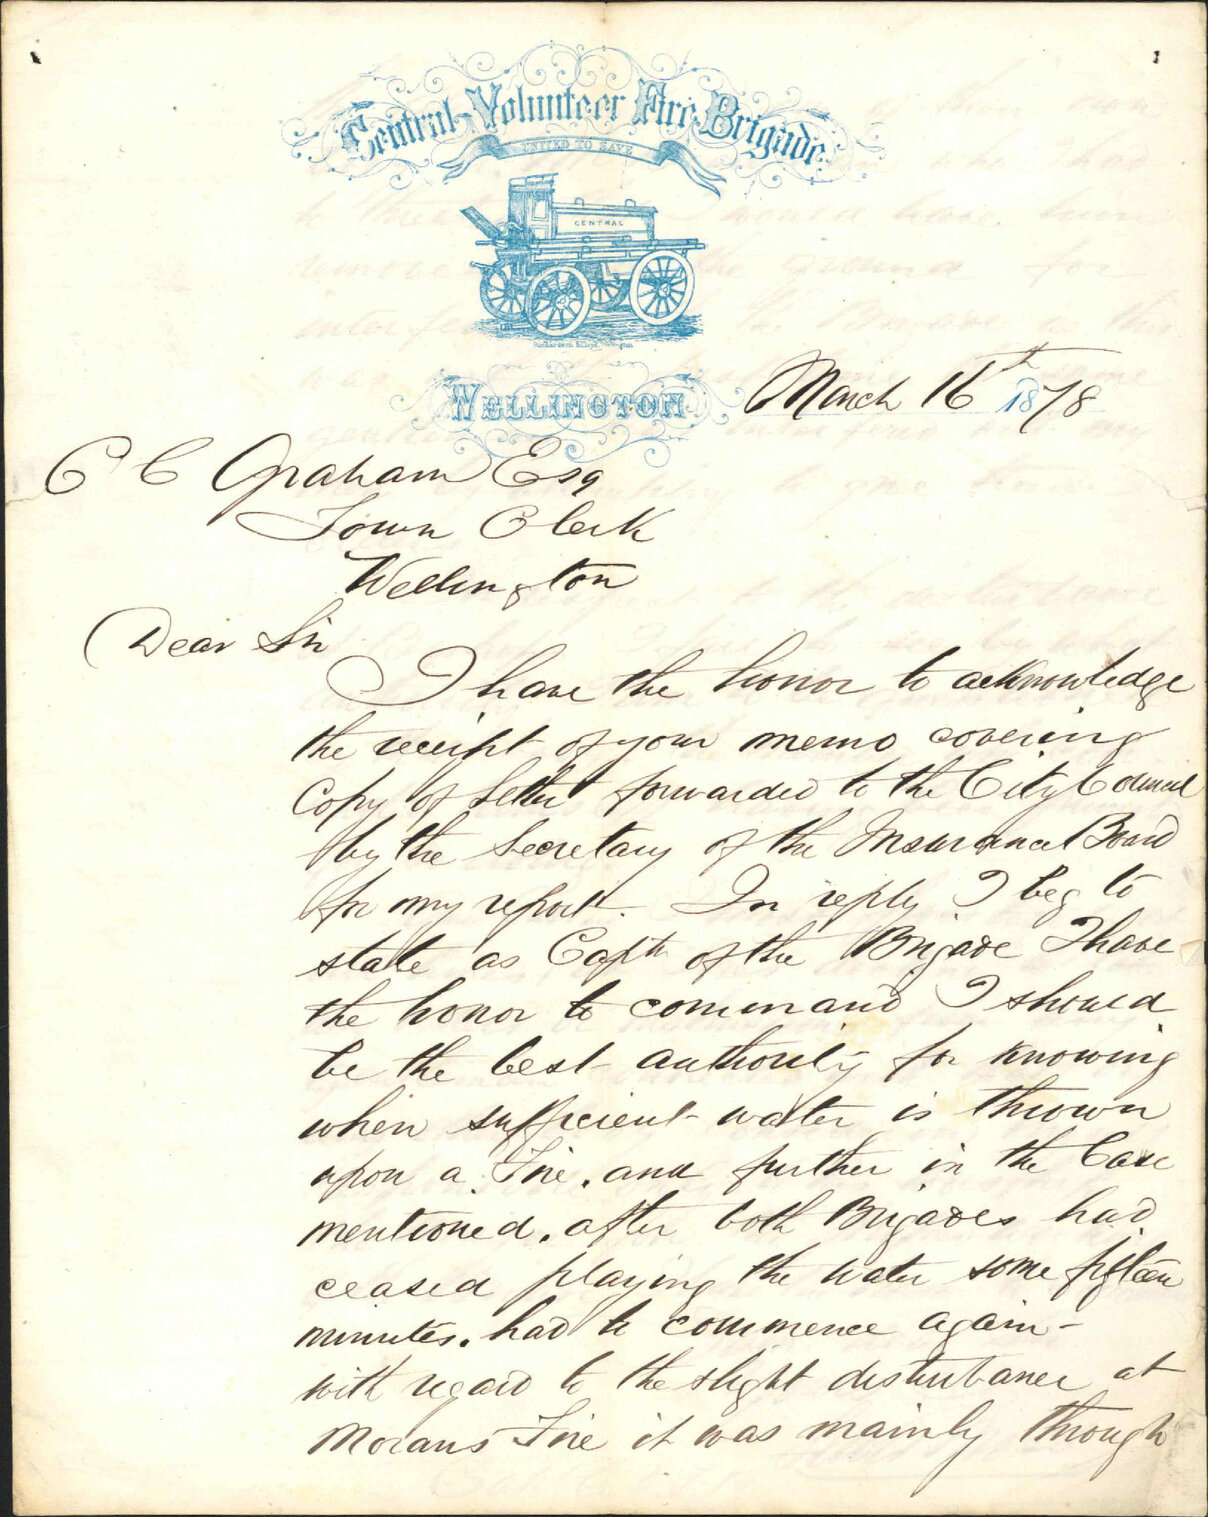 Central Volunteer Fire Brigade
UNITED TO SAVE
CENTRAL
WELLINGTON
March 16th 1878
C C Graham Esq
Town Clerk
Wellington
Dear Sir
I have the honor to acknowledge
the receipt of your memo covering
Copy of Letter forwarded to the City Council
by the Secretary of the Insurance Board
for my report. In reply I beg to
state as Captn of the Brigade I have
the honor to command I should
be the best authority for knowing
when sufficient water is thrown
upon a Fire. and further in the Case
mentioned. after both Brigades had
ceased playing the water some fifteen
minutes. had to commence again -
with regard to the slight disturbance at
Morans Fire it was mainly through